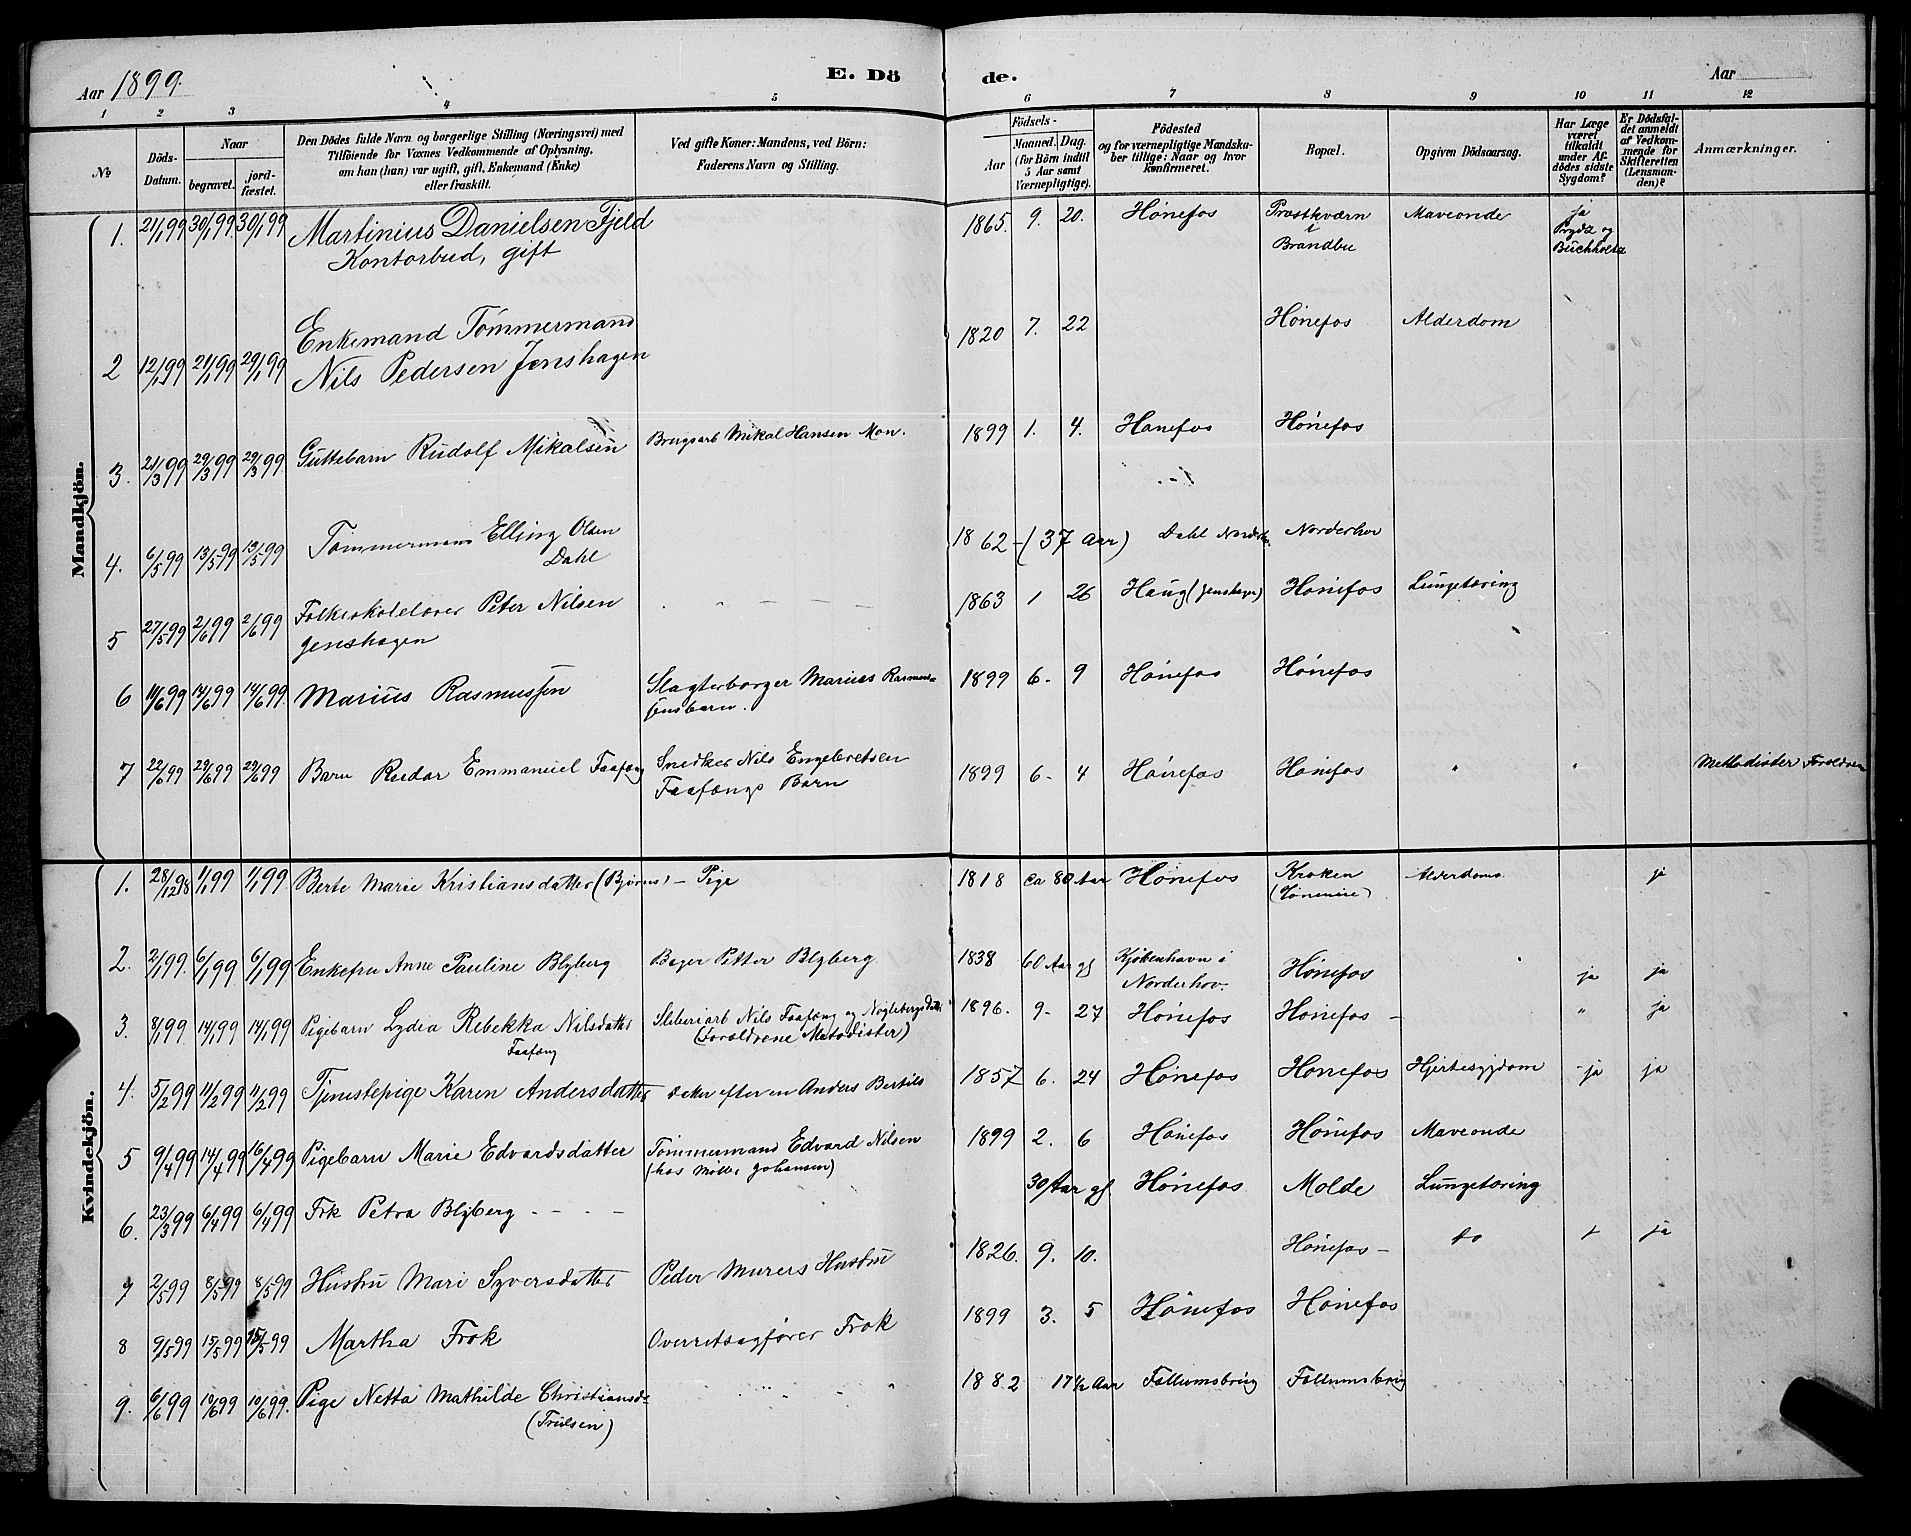 Aar 1899.
E. Dö
de.
Aar
1 2 3 4 5 6 7 8 9 10 11 12
No
Döds-
Datum.
Naar
begravet.
jord-
fæstet.
Den Dödes fulde Navn og borgerlige Stilling (Næringsvei) med
Tilföiende for Voxnes Vedkommende af Oplysning,
om han (hun) var ugift, gift, Enkemand (Enke)
eller fraskilt.
Ved gifte Koner: Mandens, ved Börn:
Faderens Navn og Stilling.
Födsels-
Aar
Maaned. Dag.
(for Börn indtil
5 Aar samt
Værnepligtige).
Födested
og for værnepligtige Mandska-
ber tillige: Naar og hvor
konfirmeret.
Bopæl.
Opgiven Dödsaarsag.
Har Læge
været
tilkaldt
under Af-
dödes sidste
Sygdom?
Er Dödsfal-
det anmeldt
af Vedkom-
mende for
Skifteretten
(Lensman-
den)?
Anmærkninger.
Mandkjön.
1. 21/1 99 30/1 99. 30/1 99 Martinius Danielsen Fjeld 1865. 9. 20. Hönefos Præstkværn Maveonde ja
Kontorbud, gift
i
Brandbu
Prydz og
Buchholtz
2 12/1 99 21/1 99 29/1 99 Enkemand Tömmermand 1820 7. 22 Hönefos Alderdom
Nils Pedersen Jenshagen
3. 21/3 99 29/3 99 29/3 99 Guttebarn Rudolf Mikalsen Brugsarb Mikal Hansen Mon. 1899 1. 4. Hönefos Hönefos
4. 6/5 99 13/5 99 13/5 99 Tömmermand Elling Olsen 1862 - (37 Aar) Dahl Norderh. Norderhov
Dahl
5 27/5 99 2/6 99 2/6 99 Folkeskolelærer Peter Nilsen 1863 1 26 Haug (Jenshagen) Hönefos Lungetæring
Jenshagen
6 11/6 99 14/6 99 14/6 99. Marius Rasmussen Slagterborger Marius Rasmus- 1899 6. 9 Hönefos Hönefos
sens barn.
7 22/6 99 29/6 99 29/6 99 Barn Reidar Emmanuel Faafæng Snedker Nils Engebretsen 1899 6- 4 Hönefos Hönefos " " Methodister Forældre
Faafængs Barn
Kvindekjön.
1. 28/12 98 1/1 99 1/1 99 Berte Marie Kristiansdatter (Bjørns) - Pige 1818 ca 80 Aar Hönefos Kroken Alderdoms ja
2. 2/1 99. 6/1 99 6/1 99 Enkefru Anne Pauline Blyberg Bager Petter Blyberg 1838 60 Aar gl Kjöbenhavn i Hönefos ja ja
Norderhov.
3. 8/1 99. 14/1 99 14/1 99 Pigebarn Lydia Rebekka Nilsdatter Sliberiarb Nils Faafæng og 1896. 9- 27 Hönefos Hönefos - " ja
Faafæng (Forældrene Metodister)
4. 5/2 99 11/2 99 11/2 99 Tjenestepige Karen Andersdatter Datter efter en Anders Bertils 1857 6. 24 Hönefos Hönefos Hjertesygdom ja ja
5 9/4 99 14/4 99 16/4 99 Pigebarn Marie Edvardsdatter Tömmermand Edvard Nilsen 1899 2. 6 Hönefos Hönefos Maveonde
(hos Möller Johansen)
6. 23/3 99 6/4 99 6/4 99 Frk Petra Blyberg - - - - 30 Aar gl Hönefos Molde Lungetæring
7 2/5 99 8/5 99 8/5 99 Hustru Mari Syversdatter Peder Murers Hustru 1826. 9. 10. Hönefos - do + ja
8 9/5 99 15/5 99 15/5 99 Martha Frok Overretsagförer Frok 1899 3. 5 Hönefos Hönefos
9. 6/6 99 10/6 99 10/6 99. Pige Netta Mathilde Christiansd- 1882 17 1/2 Aar Follumsbrug Follumsbrug
(Trulsen)